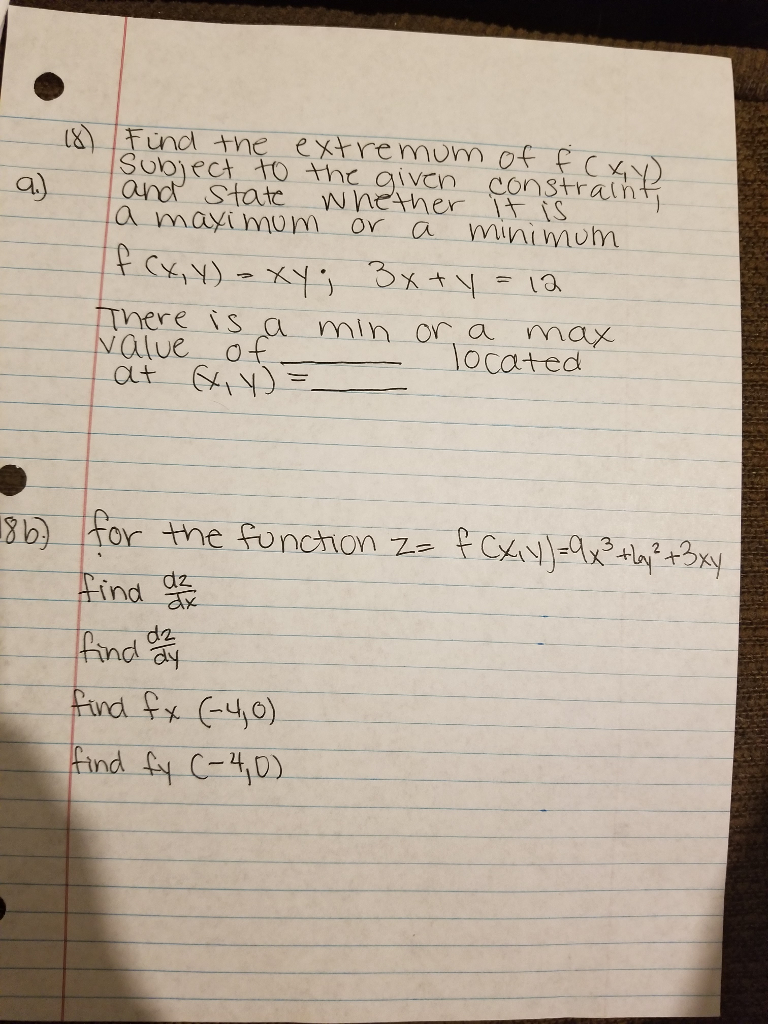 18) Find the extremum of f(x,y)
Subject to the given constraint,
a.) and state whether it is
a maximum or a minimum
f(x,y) = xy; 3x+y = 12
There is a min or a max
value of ______ located
at (x,y) = ______
18b.) for the function z= f(x,y)=9x³+6y²+3xy
find dz/dx
find dz/dy
find fx (-4,0)
find fy (-4,0)